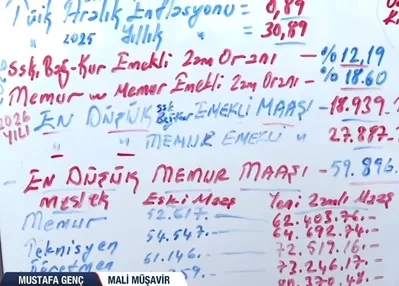 Tüik Aralık Enflasyonu = 0,89
" 2025 Yıllık " = 30,89
Ssk, Bağ-Kur Emekli Zam Oranı - %12,19
Memur ve Memur Emekli Zam Oranı - %18.60
2026 YILI
EN DÜŞÜK ssk Bağkur EMEKLİ MAAŞI - 18.939.
" " MEMUR EMEKLİ " - 27.887.
- EN DÜŞÜK MEMUR MAAŞI - 59.896.
Meslek Eski Maaş Yeni Zamlı Maaş
Memur 52.617.- 62.403.76.-
Teknisyen 54.547.- 64.692.74.-
Öğretmen 61.146.- 72.519.16.-
73.246.17.-
MUSTAFA GENÇ MALİ MÜŞAVİR